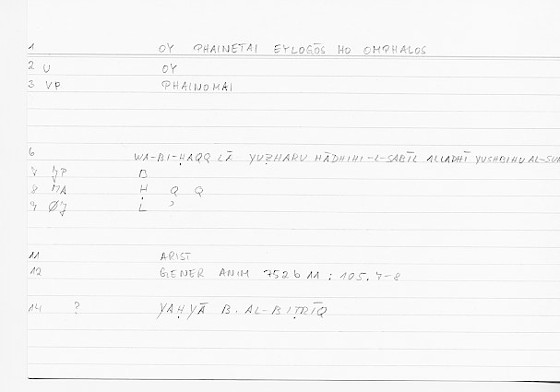 1 OY PHAINETAI EYLOGŌS HO OMPHALOS
2 U OY
3 VP PHAINOMAI
6 WA-BI-ḤAQQ LĀ YUẒHARU HĀDHIHI-L-SABĪL ALLADHĪ YUSHBIHU AL-SUR
B
8 MA Ḥ Q Q
L
11 ARIST
12 GENER ANIM 752b11 : 105,7-8
14 ? YAḤYĀ B. AL-BIṬRĪQ